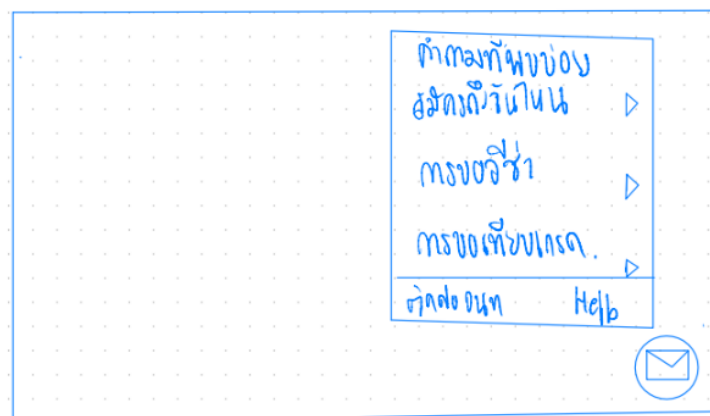 คำถามที่พบบ่อย
สมัครถึงวันไหน
การขอวีซ่า
การขอเทียบเกรด.
ติดต่อ จนท Help